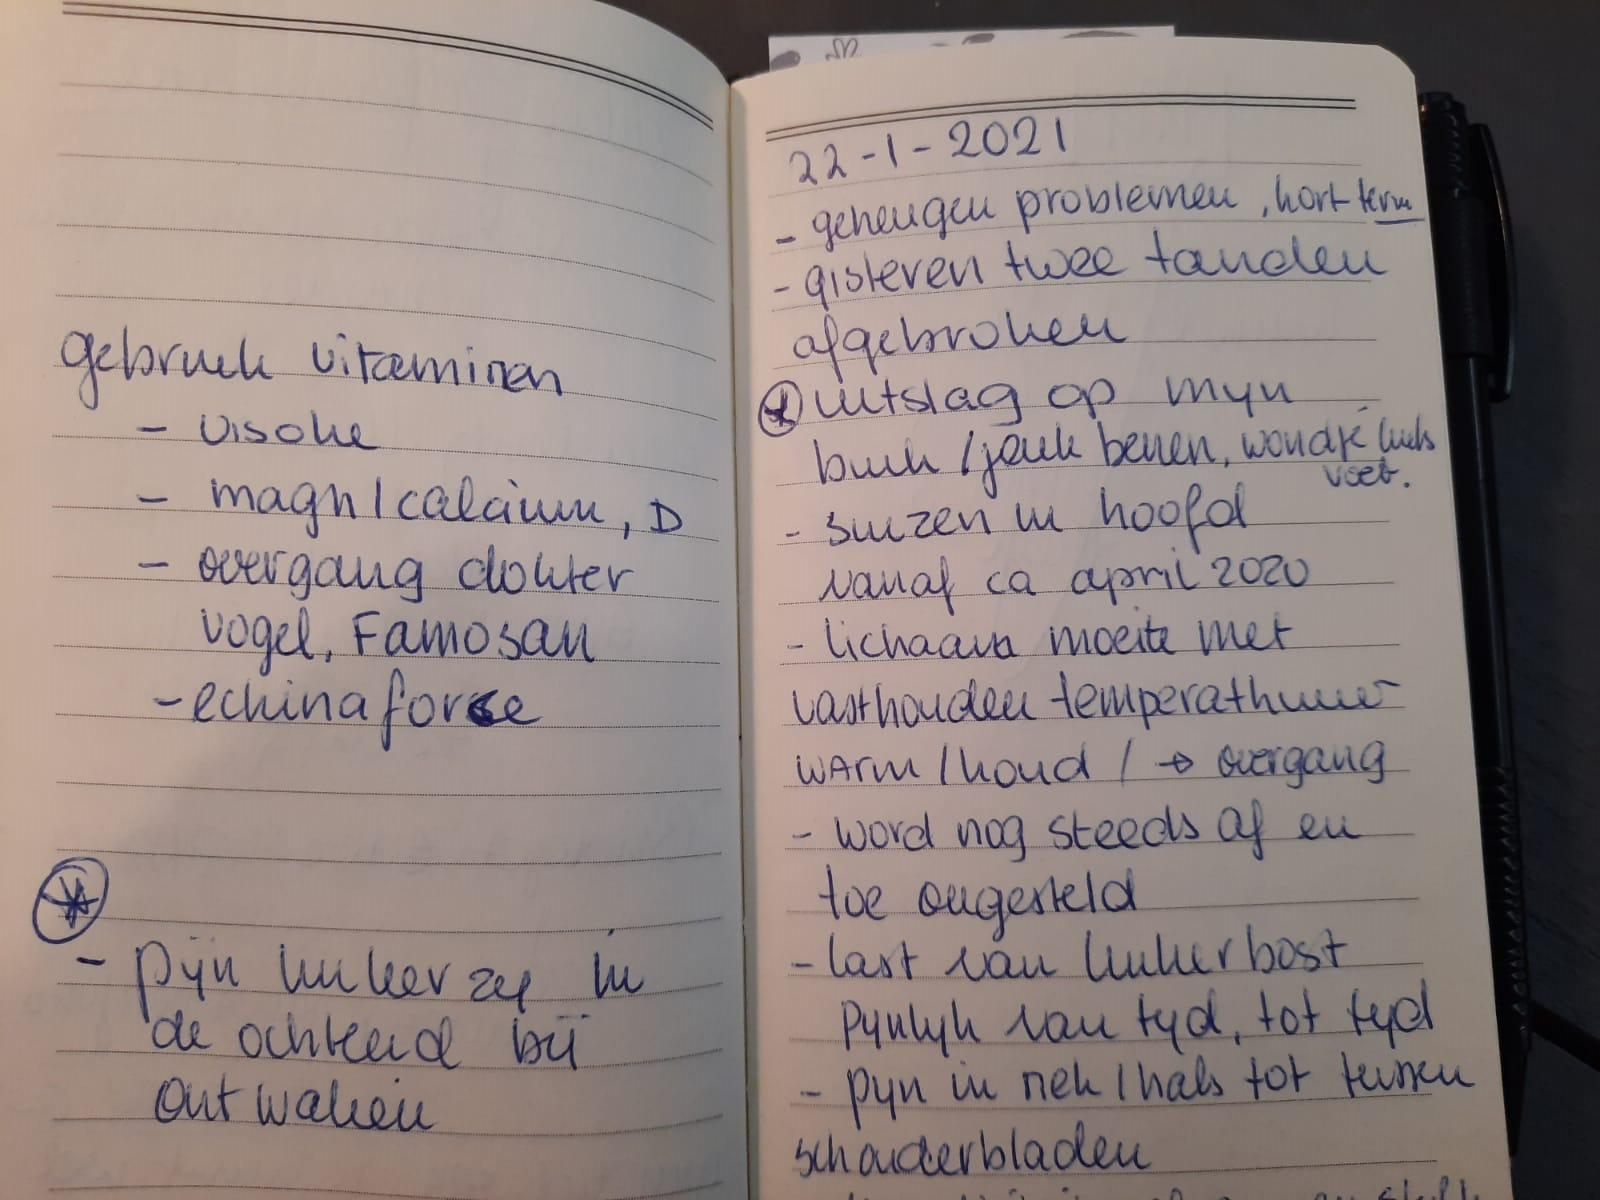 gebruik vitaminen
- visolie
- magn/calcium, D
- overgang dokter
vogel, Famosan
- echinaforce
- pijn linker zij in
de ochtend bij
ontwaken
22-1-2021
- geheugen problemen, kort term
- gisteren twee tanden
afgebroken
uitslag op mijn
buik / jeuk benen, wondje links
voet.
- suizen in hoofd
vanaf ca april 2020
- lichaam moeite met
vasthouden temperathuur
warm / koud / → overgang
- word nog steeds af en
toe ongesteld
- last van linker bost
pijnlijk van tijd, tot tijd
- pijn in nek / hals tot tussen
schouderbladen